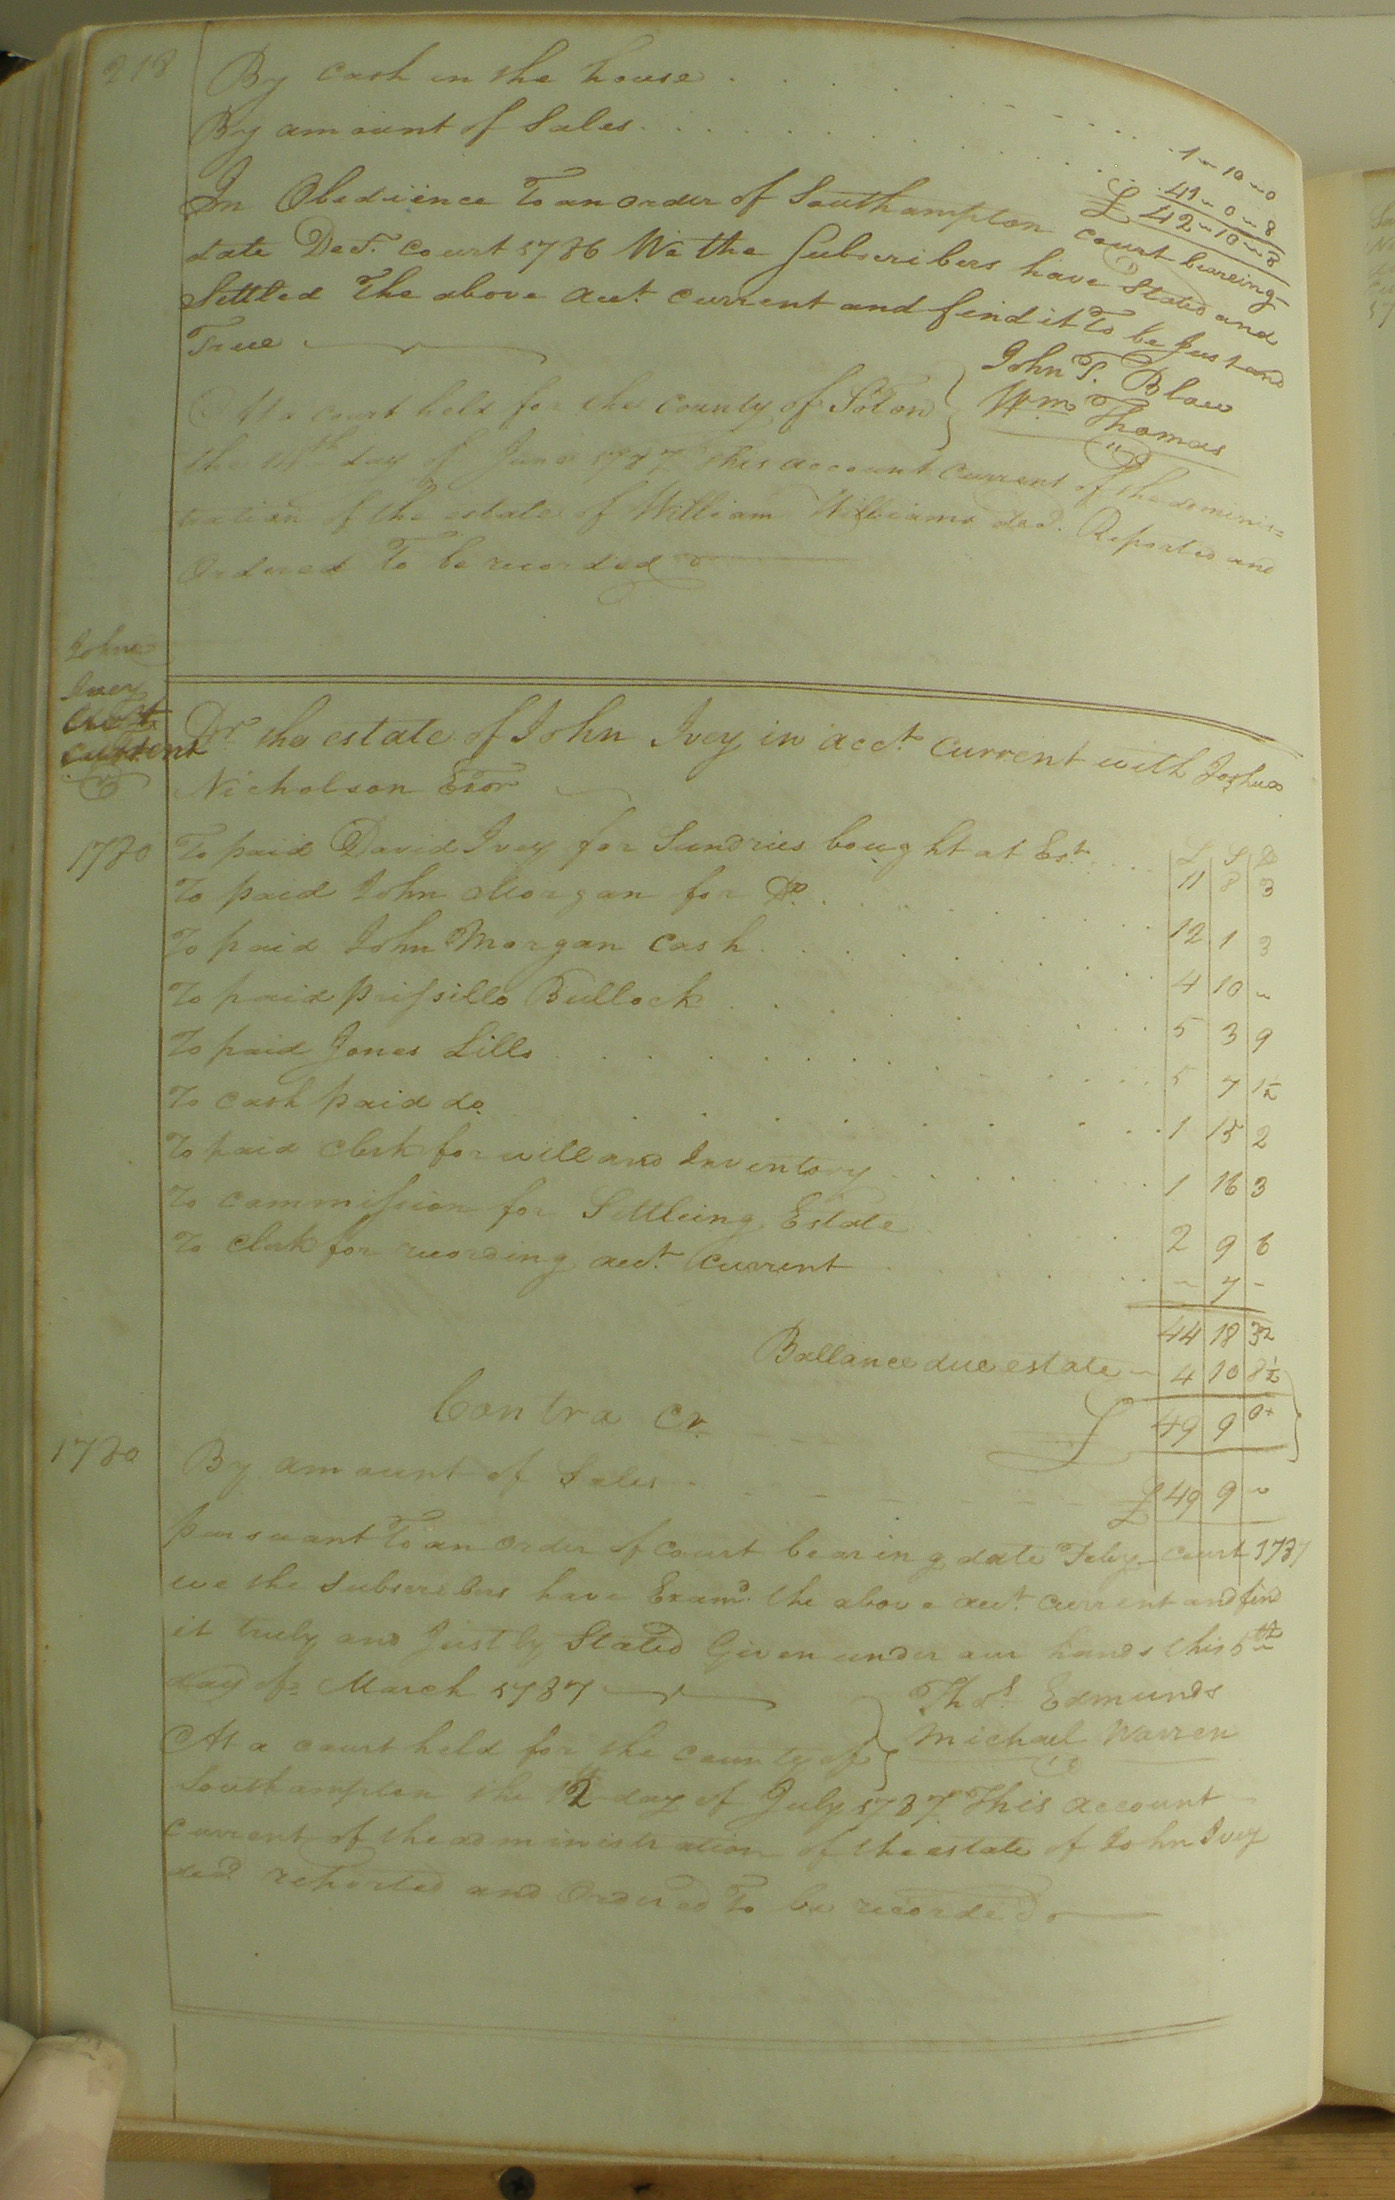 218
By Cash in the house . . . . 1 ~ 10 ~ 0
By amount of Sales . . . . 41 ~ 0 ~ 8
£ 42 ~ 10 ~ 8
In Obedience To an order of Southampton court beareing
date Decr. court 1786 We the Subscribers have Stated and
Settled The above acct. current and find it To be Just and
True
John T. Blow
Wm. Thomas
At a court held for the county of Soton
the 14th day of June 1787 This account current of the adminis=
tration of the estate of William Williams decd. Reported and
Ordered To be recorded
John
Ivey
acct
current
Dr. the estate of John Ivey in acct. current with Joshua
Nicholson Exor
£ S D
1780 To paid David Ivey for Sundries bought at Est. . . . 11 8 3
To paid John Morgan for Do. . . . 12 1 3
To paid John Morgan Cash . . . 4 10 ~
To paid prissilla Bullock . . . 5 3 9
To paid Jones Lills . . . 5 7 1½
To cash paid do. . . . 1 15 2
To paid Clerk for will and Inventory . . . 1 16 3
To commission for Settleing Estate . . . 2 9 6
To Clerk for recording acct. Current . . . ~ 7 -
44 18 3½
Ballance due estate ~ 4 10 8½
£ 49 9 0
Contra Cr.
1780 By amount of Sales - - - £ 49 9 ~
pursuant To an order of Court bearing date Feby. court 1787
we the Subscribers have Examd. the above acct. current and find
it truly and Justly Stated Given under our hands this 5th
day of March 1787
Thos. Edmunds
Michael Warren
At a court held for the county of
Southampton the 12 day of July 1787 This account
current of the administration of the estate of John Ivey
decd. reported and Ordered To be recorded